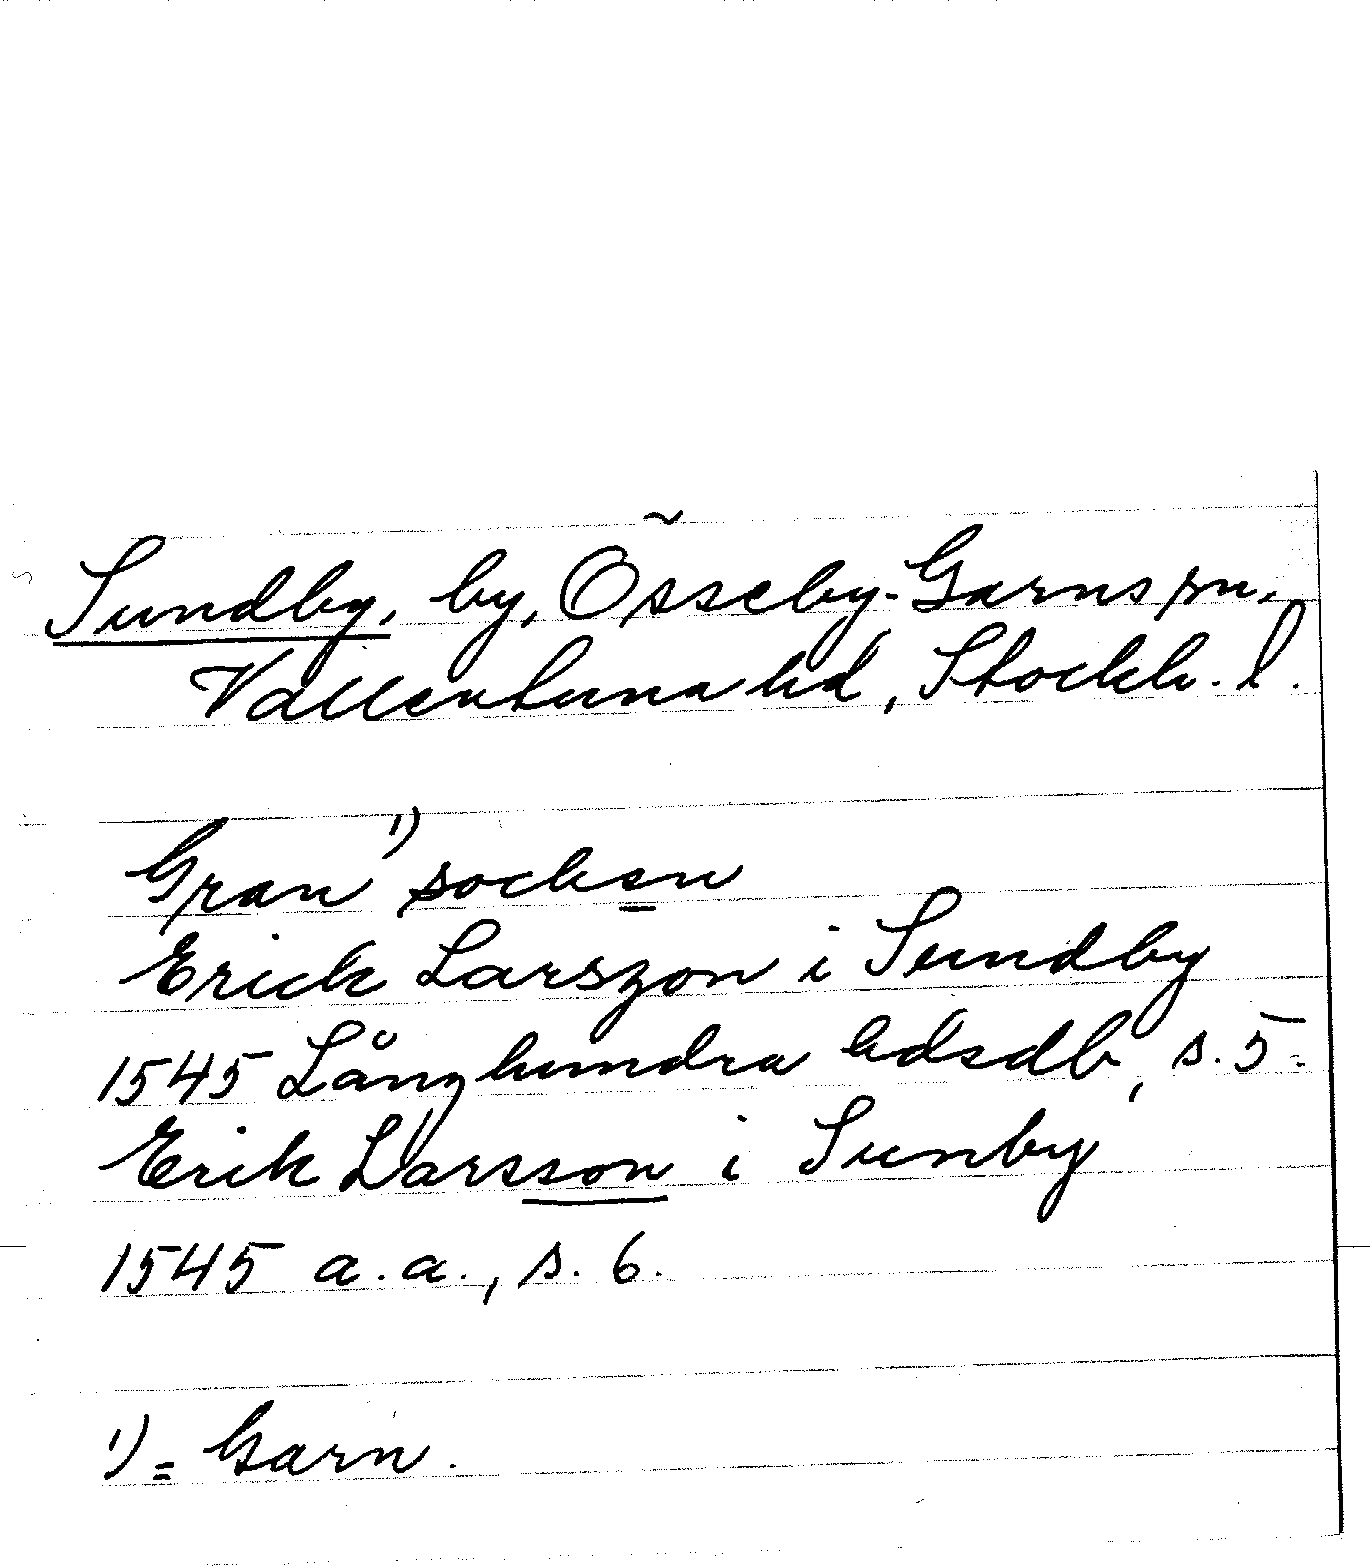 Sundby, by, Össeby-Garns sn,
Vallentuna hd, Stockh. l.
Gran ¹) socken
Erick Larszon i Sundby
1545 Långhundra hdsdb, s. 5.
Erik Larsson i Sunby
1545 a.a., s. 6.
¹) = Garn.